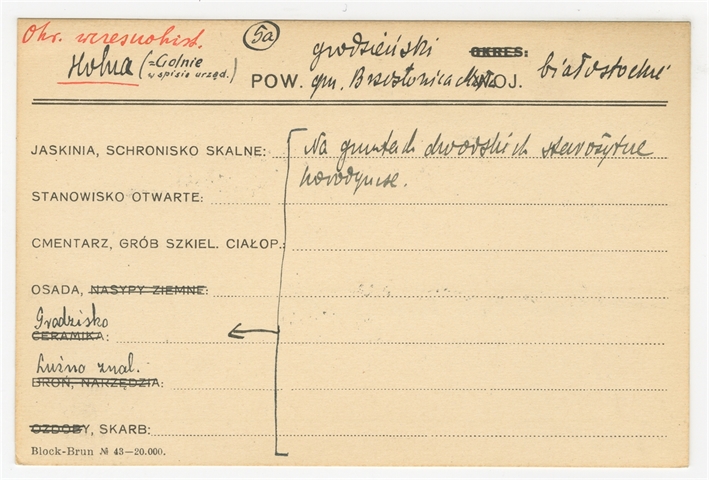 Okr. wczesnohist.
5a
Holna (=Golnie
w spisie urzęd.)
grodzieński
OKRES:
POW. gm. Brzostowica WOJ. białostockie
JASKINIA, SCHRONISKO SKALNE: Na gruntach dworskich starożytne
horodyszcze.
STANOWISKO OTWARTE:
CMENTARZ, GRÓB SZKIEL. CIAŁOP.:
OSADA, NASYPY ZIEMNE:
Grodzisko
CERAMIKA:
Luźno znal.
BROŃ, NARZĘDZIA:
OZDOBY, SKARB:
Block-Brun № 43—20.000.